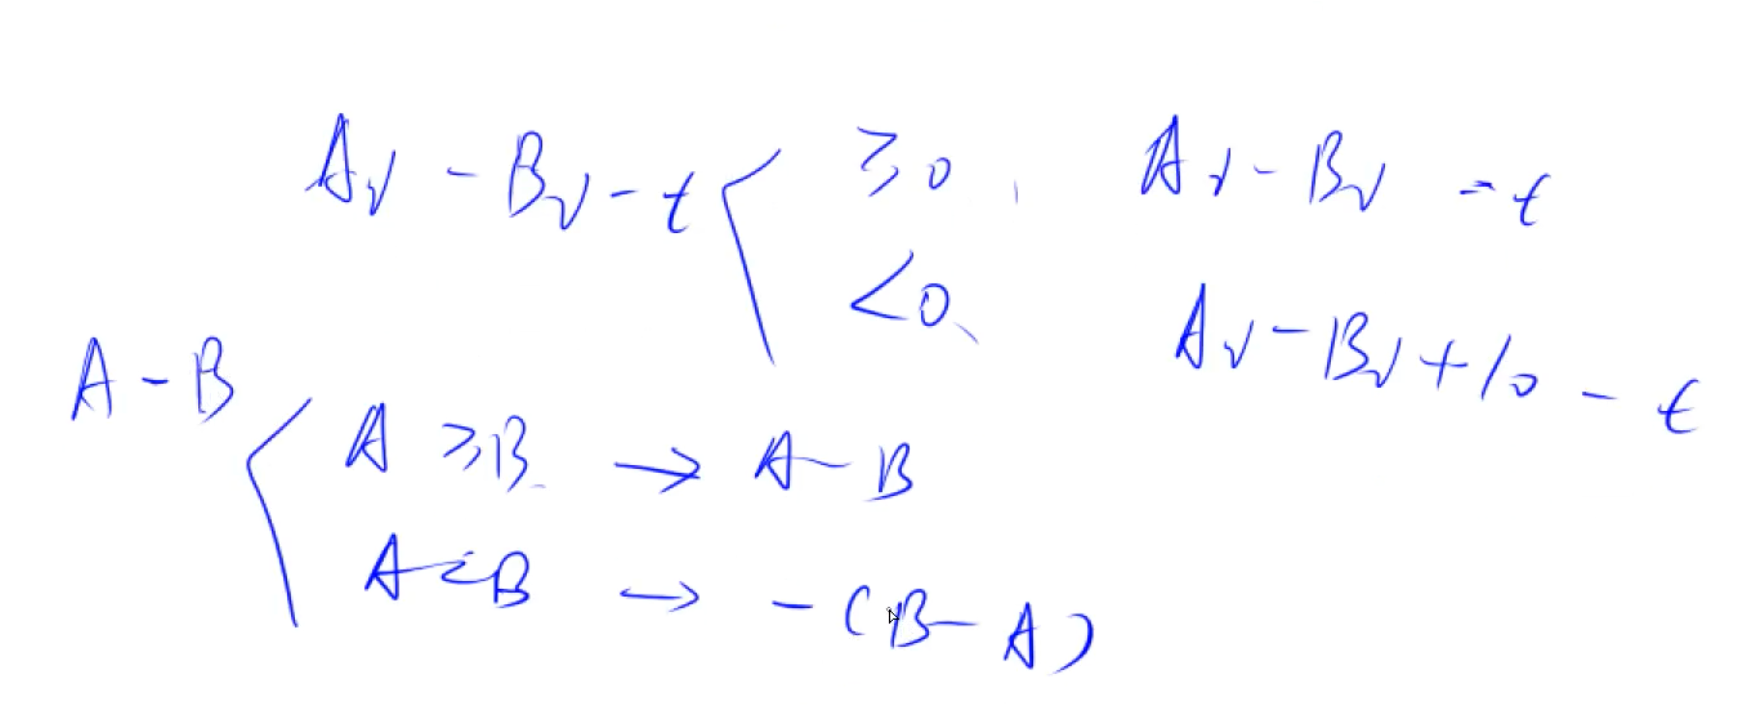 Aᵢ - Bᵢ - t < ≥0, Aᵢ - Bᵢ - t
<0, Aᵢ - Bᵢ + 10 - t
A - B
A ≥ B → A - B
A < B → - (B - A)